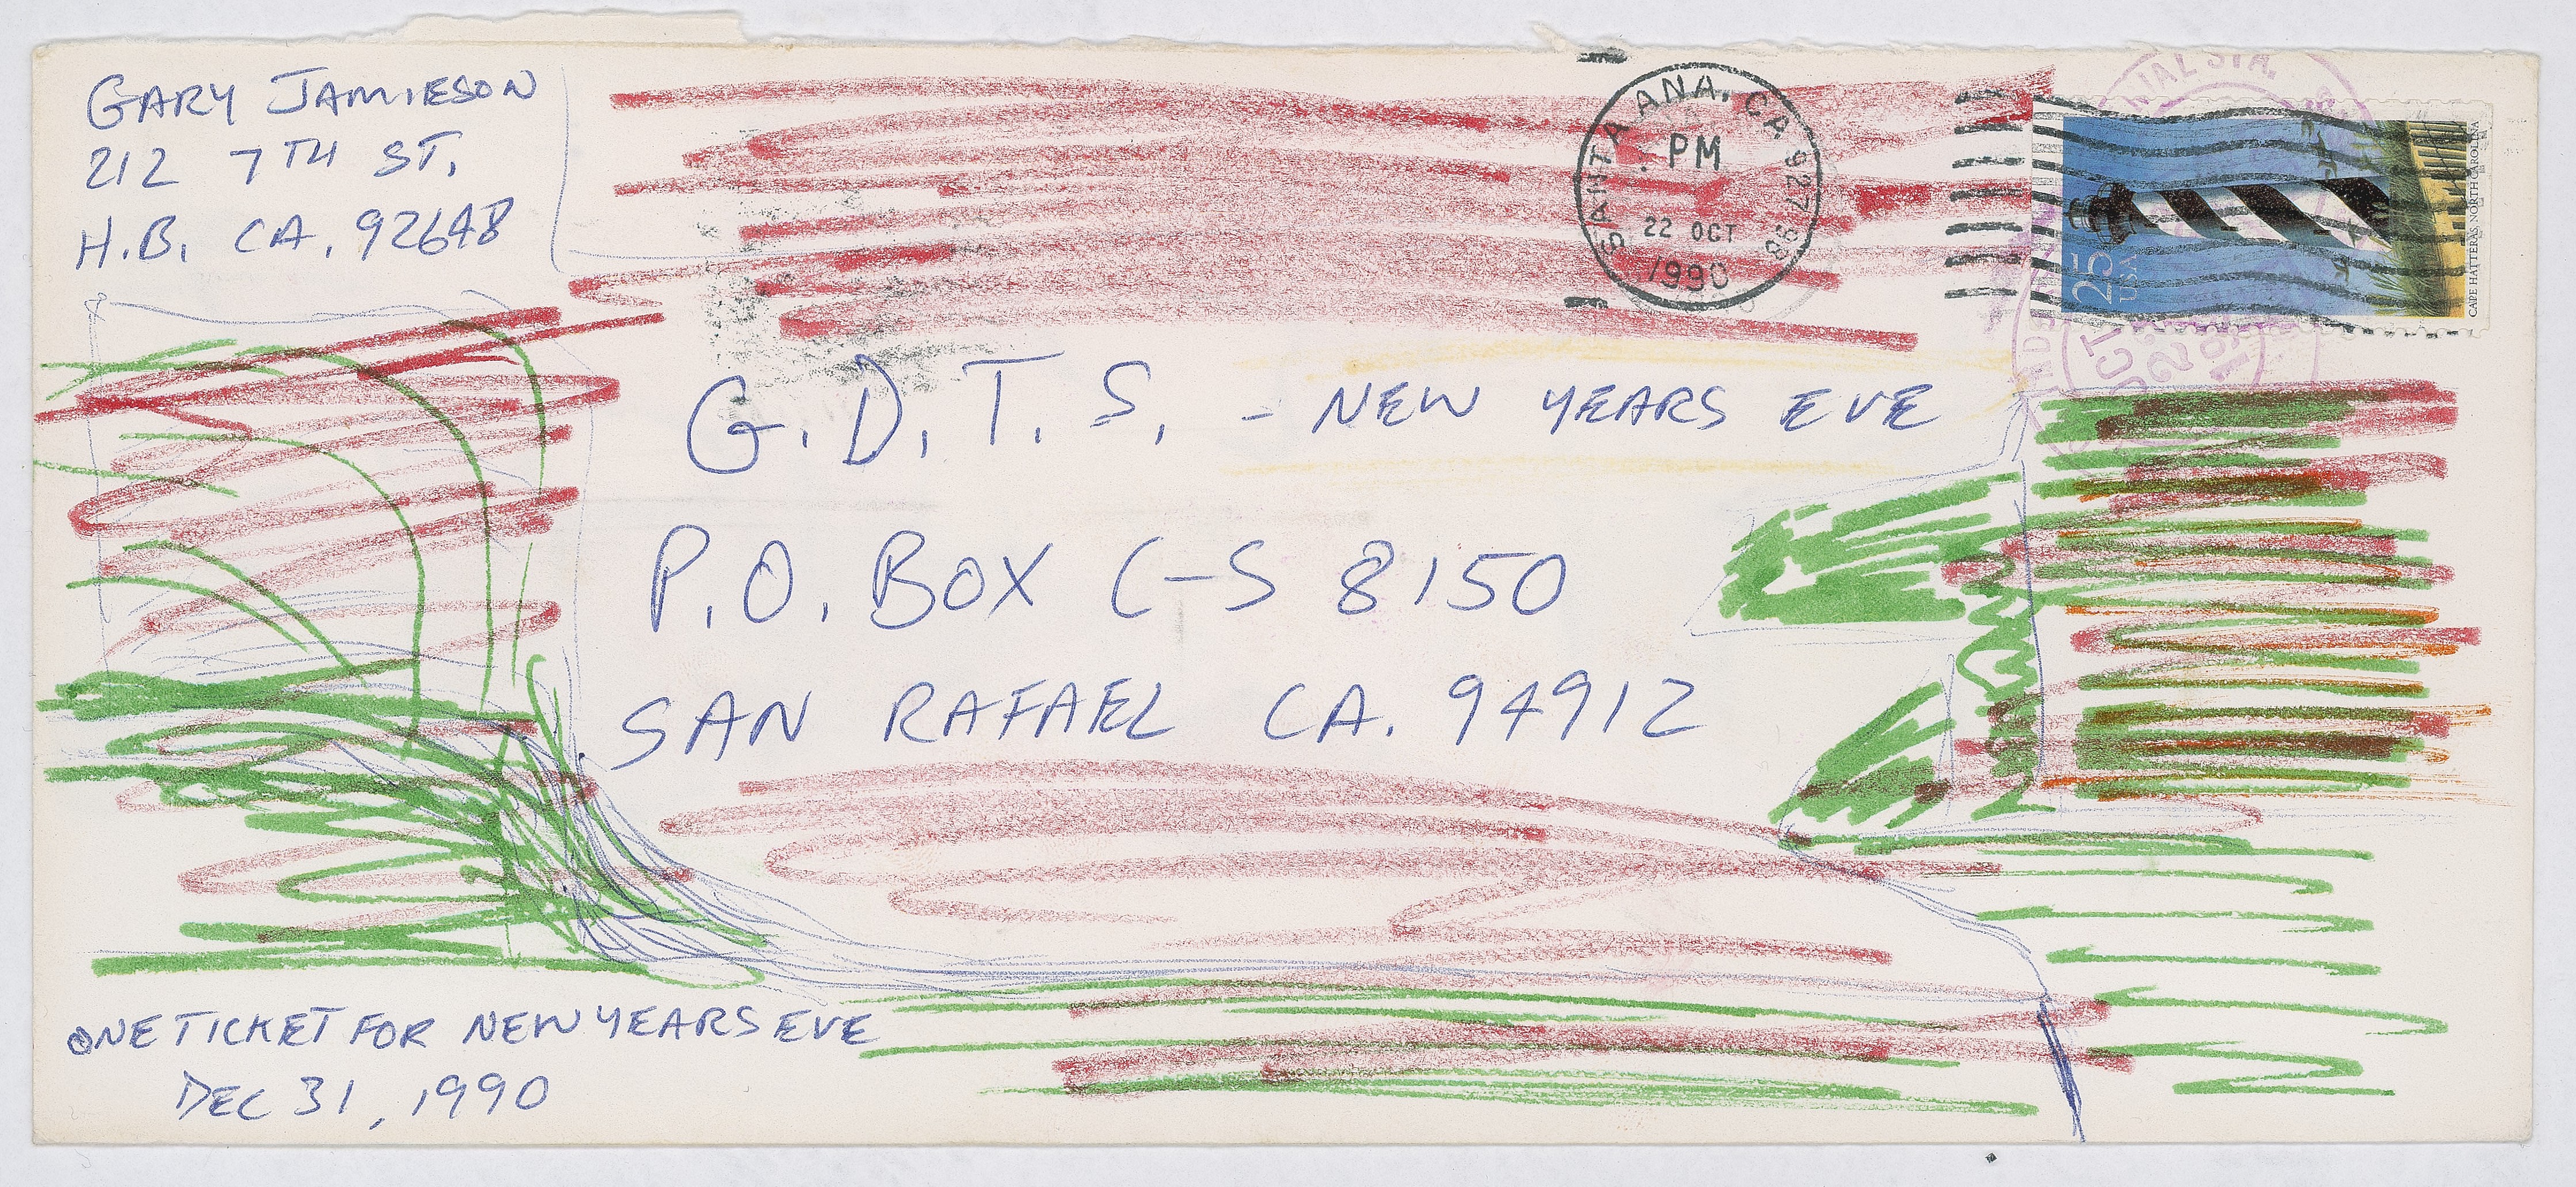 GARY JAMIESON
212 7TH ST.
H.B. CA. 92648
SANTA ANA, CA 927 98
PM
22 OCT
1990
25
USA
CAPE HATTERAS, NORTH CAROLINA
G.D.T.S. - NEW YEARS EVE
P.O. BOX C-S 8150
SAN RAFAEL CA. 94912
ONE TICKET FOR NEW YEARS EVE
DEC 31, 1990